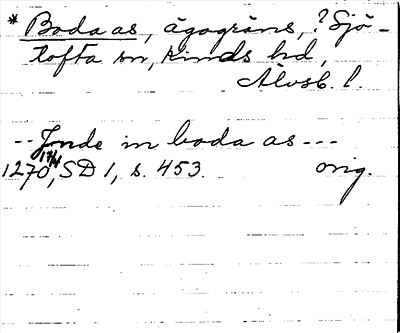 * Boda as, ägogräns, ? Sjö-
tofta sn, Kinds hd,
Älvsb. l.
-- Jnde in boda as ---
1270 17/4, SD 1, s. 453. orig.